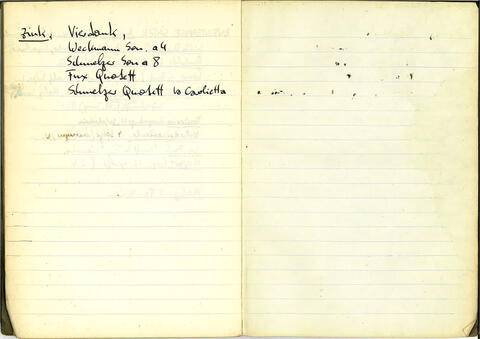 Zink, Vierdank,
Weckmann Son. a 4
Schmelzer Son a 8
Fux Quartett
Schmelzer Quartett la Carolietta